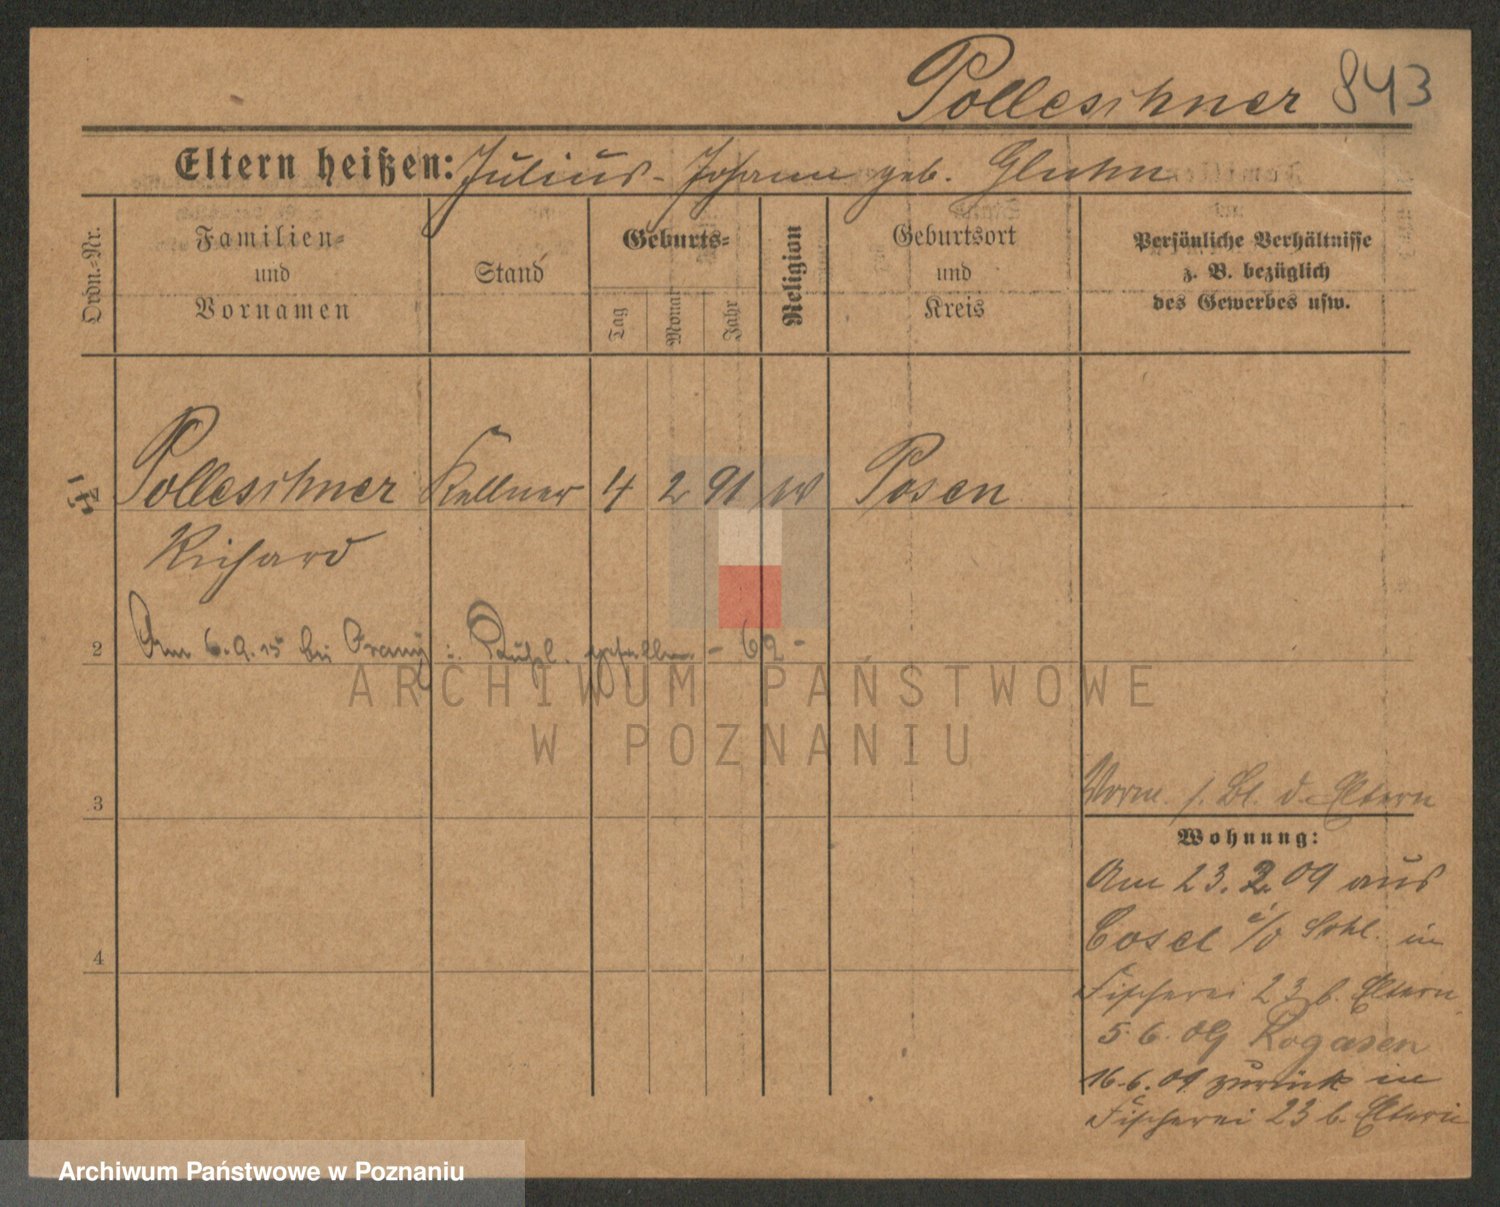 Polleschner 843
Eltern heißen: Julius - Johanne geb. Gluhn
Ordn.-Nr.
Familien-
und
Vornamen
Stand
Geburts-
Tag
Monat
Jahr
Religion
Geburtsort
und
Kreis
Persönliche Verhältnisse
z. B. bezüglich
des Gewerbes usw.
Polleschner Kellner 4 2 91 Posen
Richard
2 Am 6.9.15 bei Orany i. Rußl. gefallen - 62 -
ARCHIWUM PAŃSTWOWE
W POZNANIU
3
Vorm. s. Bl. d. Eltern
Wohnung:
Am 23.2.09 aus
Cosel i/O Schl. in
4
Fischerei 23 b. Eltern.
5.6.09 Rogasen
16.6.09 zurück in
Fischerei 23 b. Eltern
Archiwum Państwowe w Poznaniu